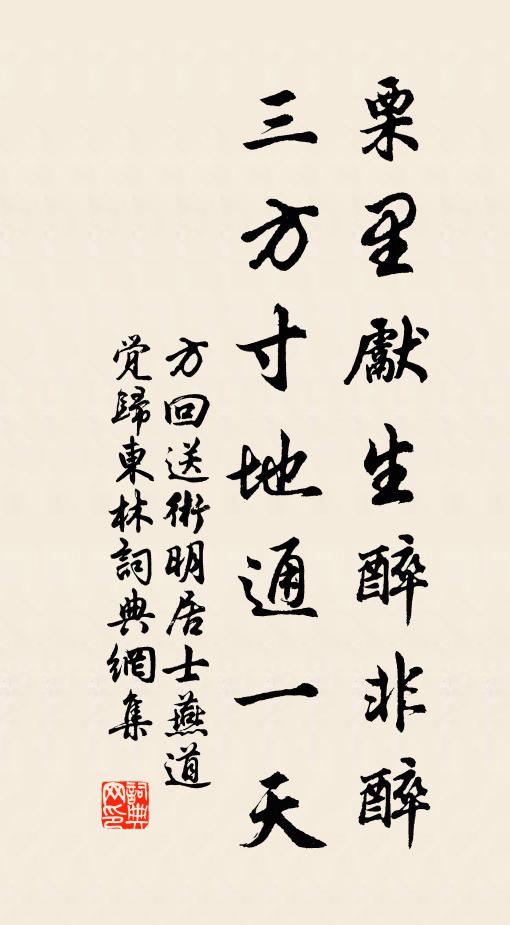 栗里獻生醉非醉
三方寸地通一天
方回送術明居士燕道
覺歸東林詞典網集
詞典网印